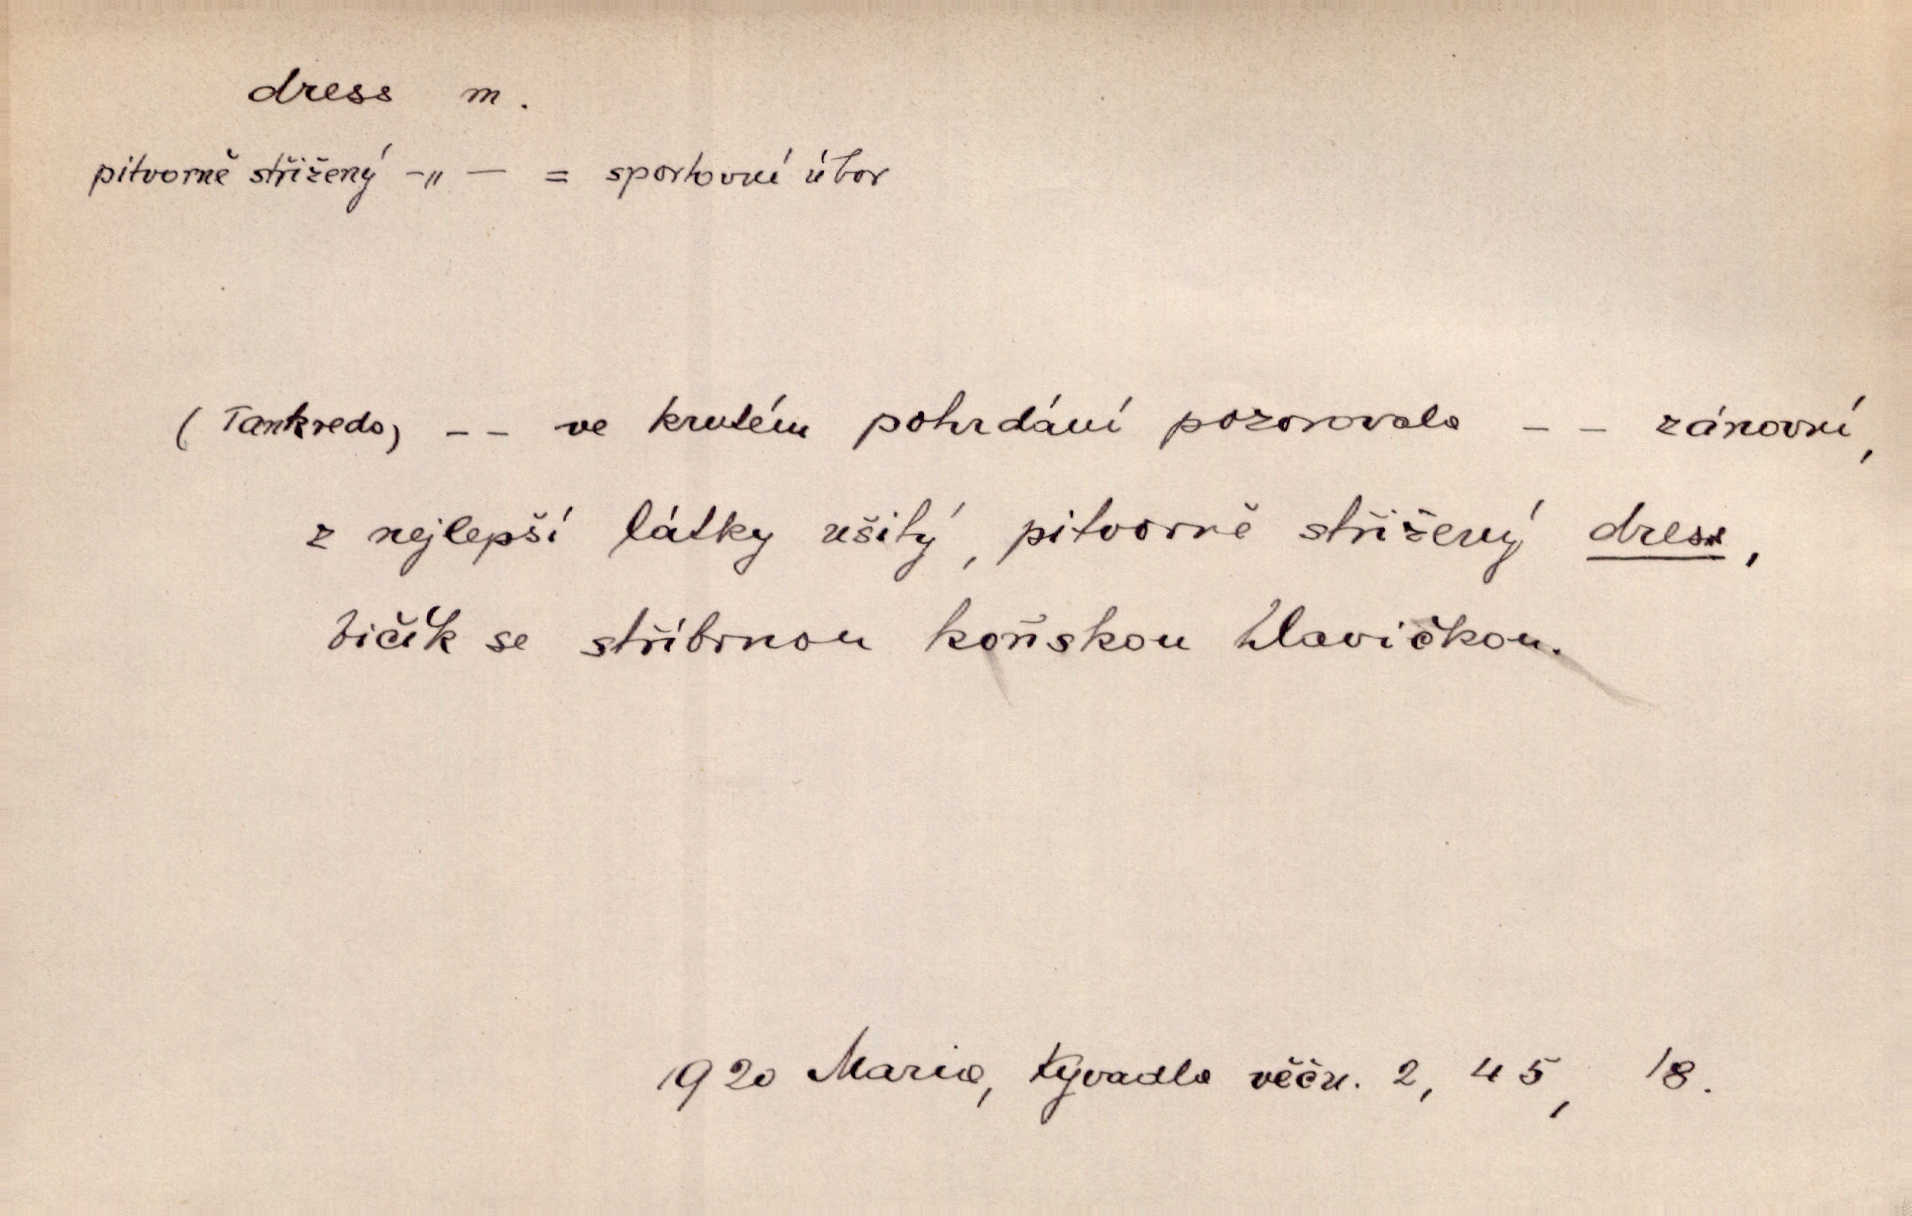 dress m.
pitvorně střižený -„- = sportovní úbor
(Tankredo) -- ve krutém pohrdání pozorovala -- zánovní,
z nejlepší látky ušitý, pitvorně střižený dress,
bičík se stříbrnou koňskou hlavičkou.
1920 Maria, Kyvadlo věčn. 2, 45, 18.